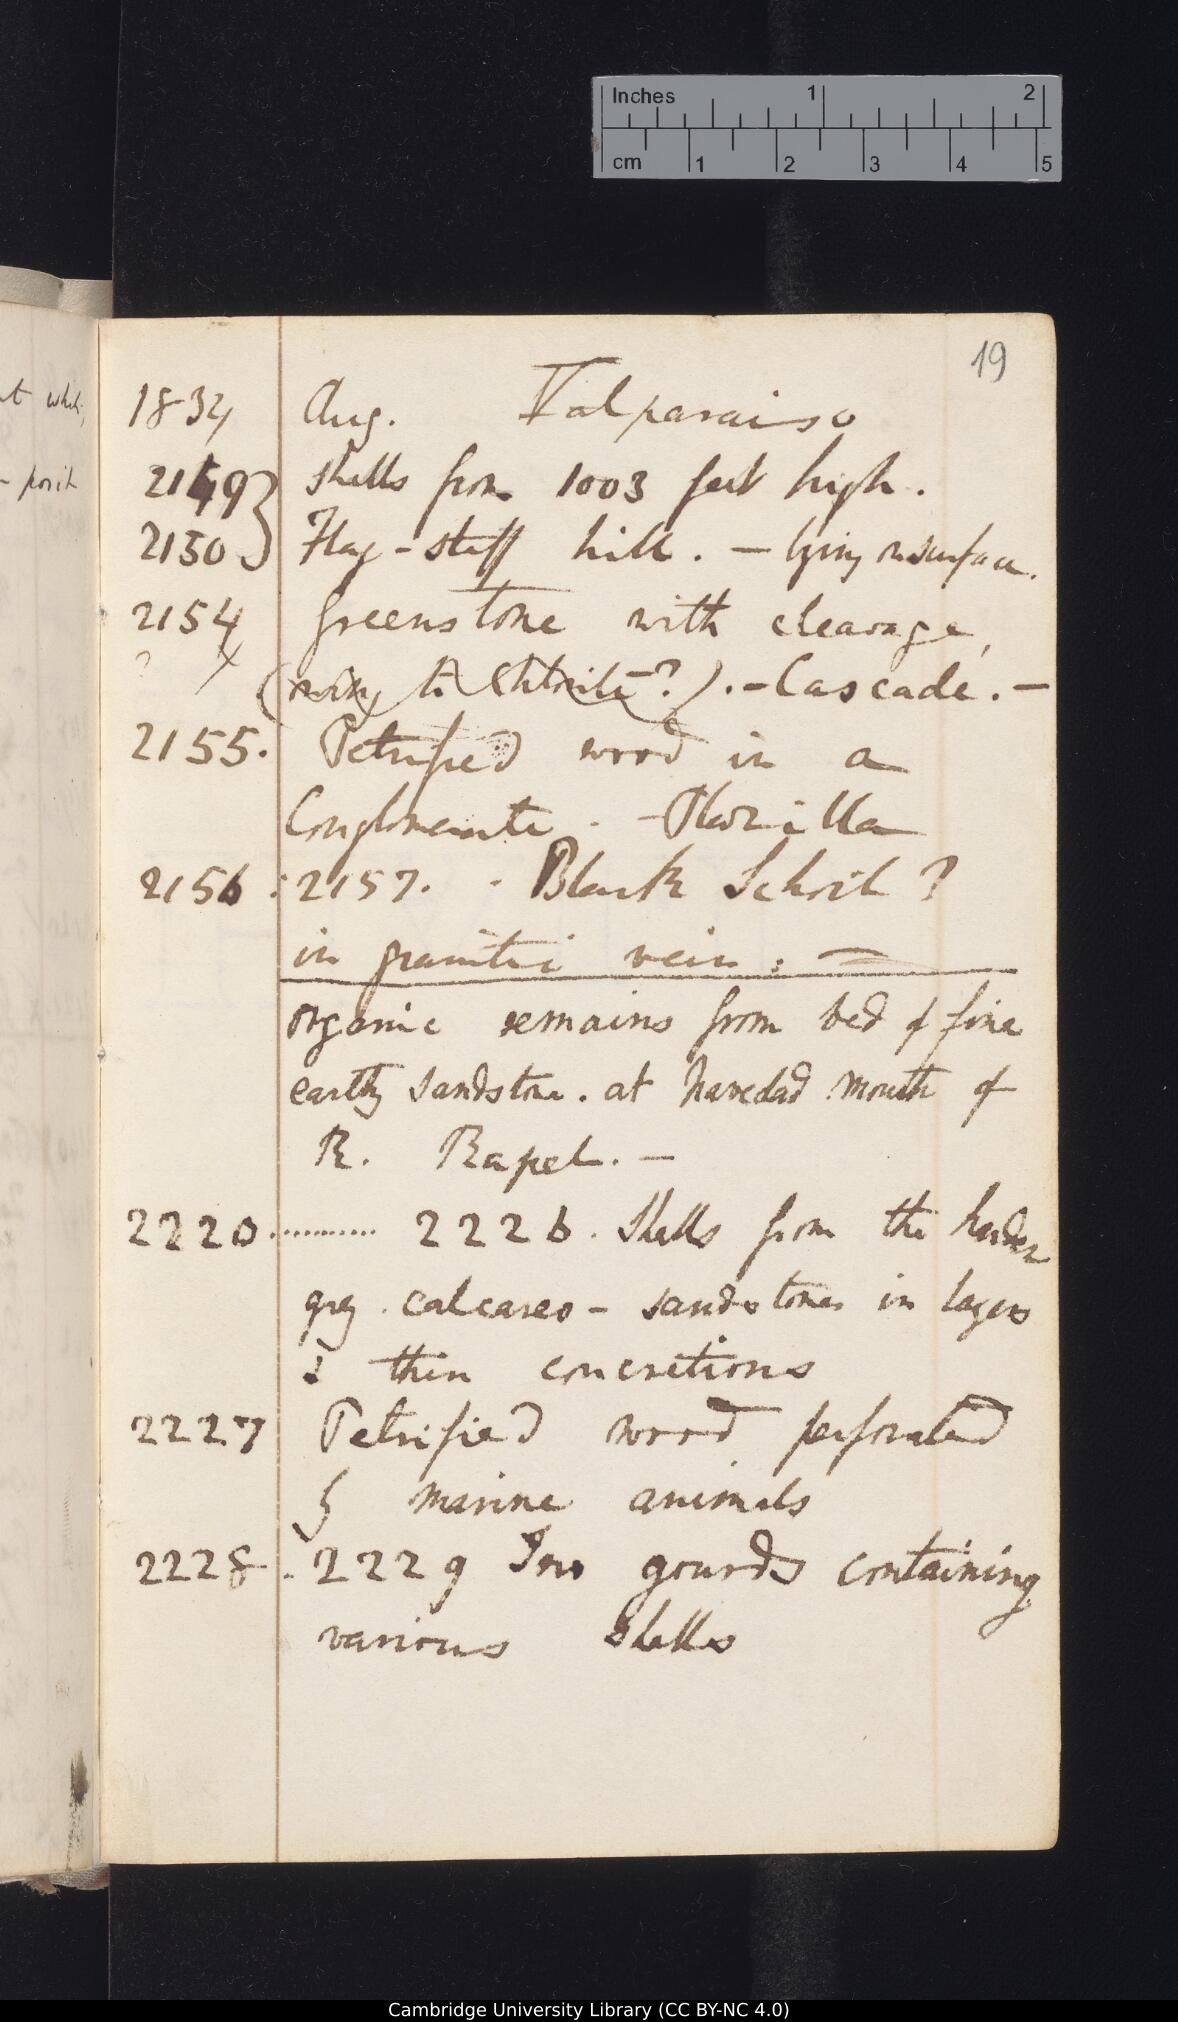 Inches 1 2
cm 1 2 3 4 5
19
1834 Aug. Valparaiso
2149 } Shells from 1003 feet high.
2150 } Flag-staff hill. — lying on surface.
2154 Greenstone with cleavage,
? (owing to Chlorite?). — Cascade. —
2155. Petrified wood in a
Conglomerate. — Plazilla
2156 : 2157. . Black Schorl?
in granitic vein: —
Organic remains from bed of fine
earthy sandstone. at mouth of
R. Rapel. —
2220 ........... 2226. Shells from the harder
grey. calcareo - sandstones in layers
& thin concretions
2227 Petrified wood perforated
by marine animals
2228 . 2229 Two gourds containing
various shells
Cambridge University Library (CC BY-NC 4.0)